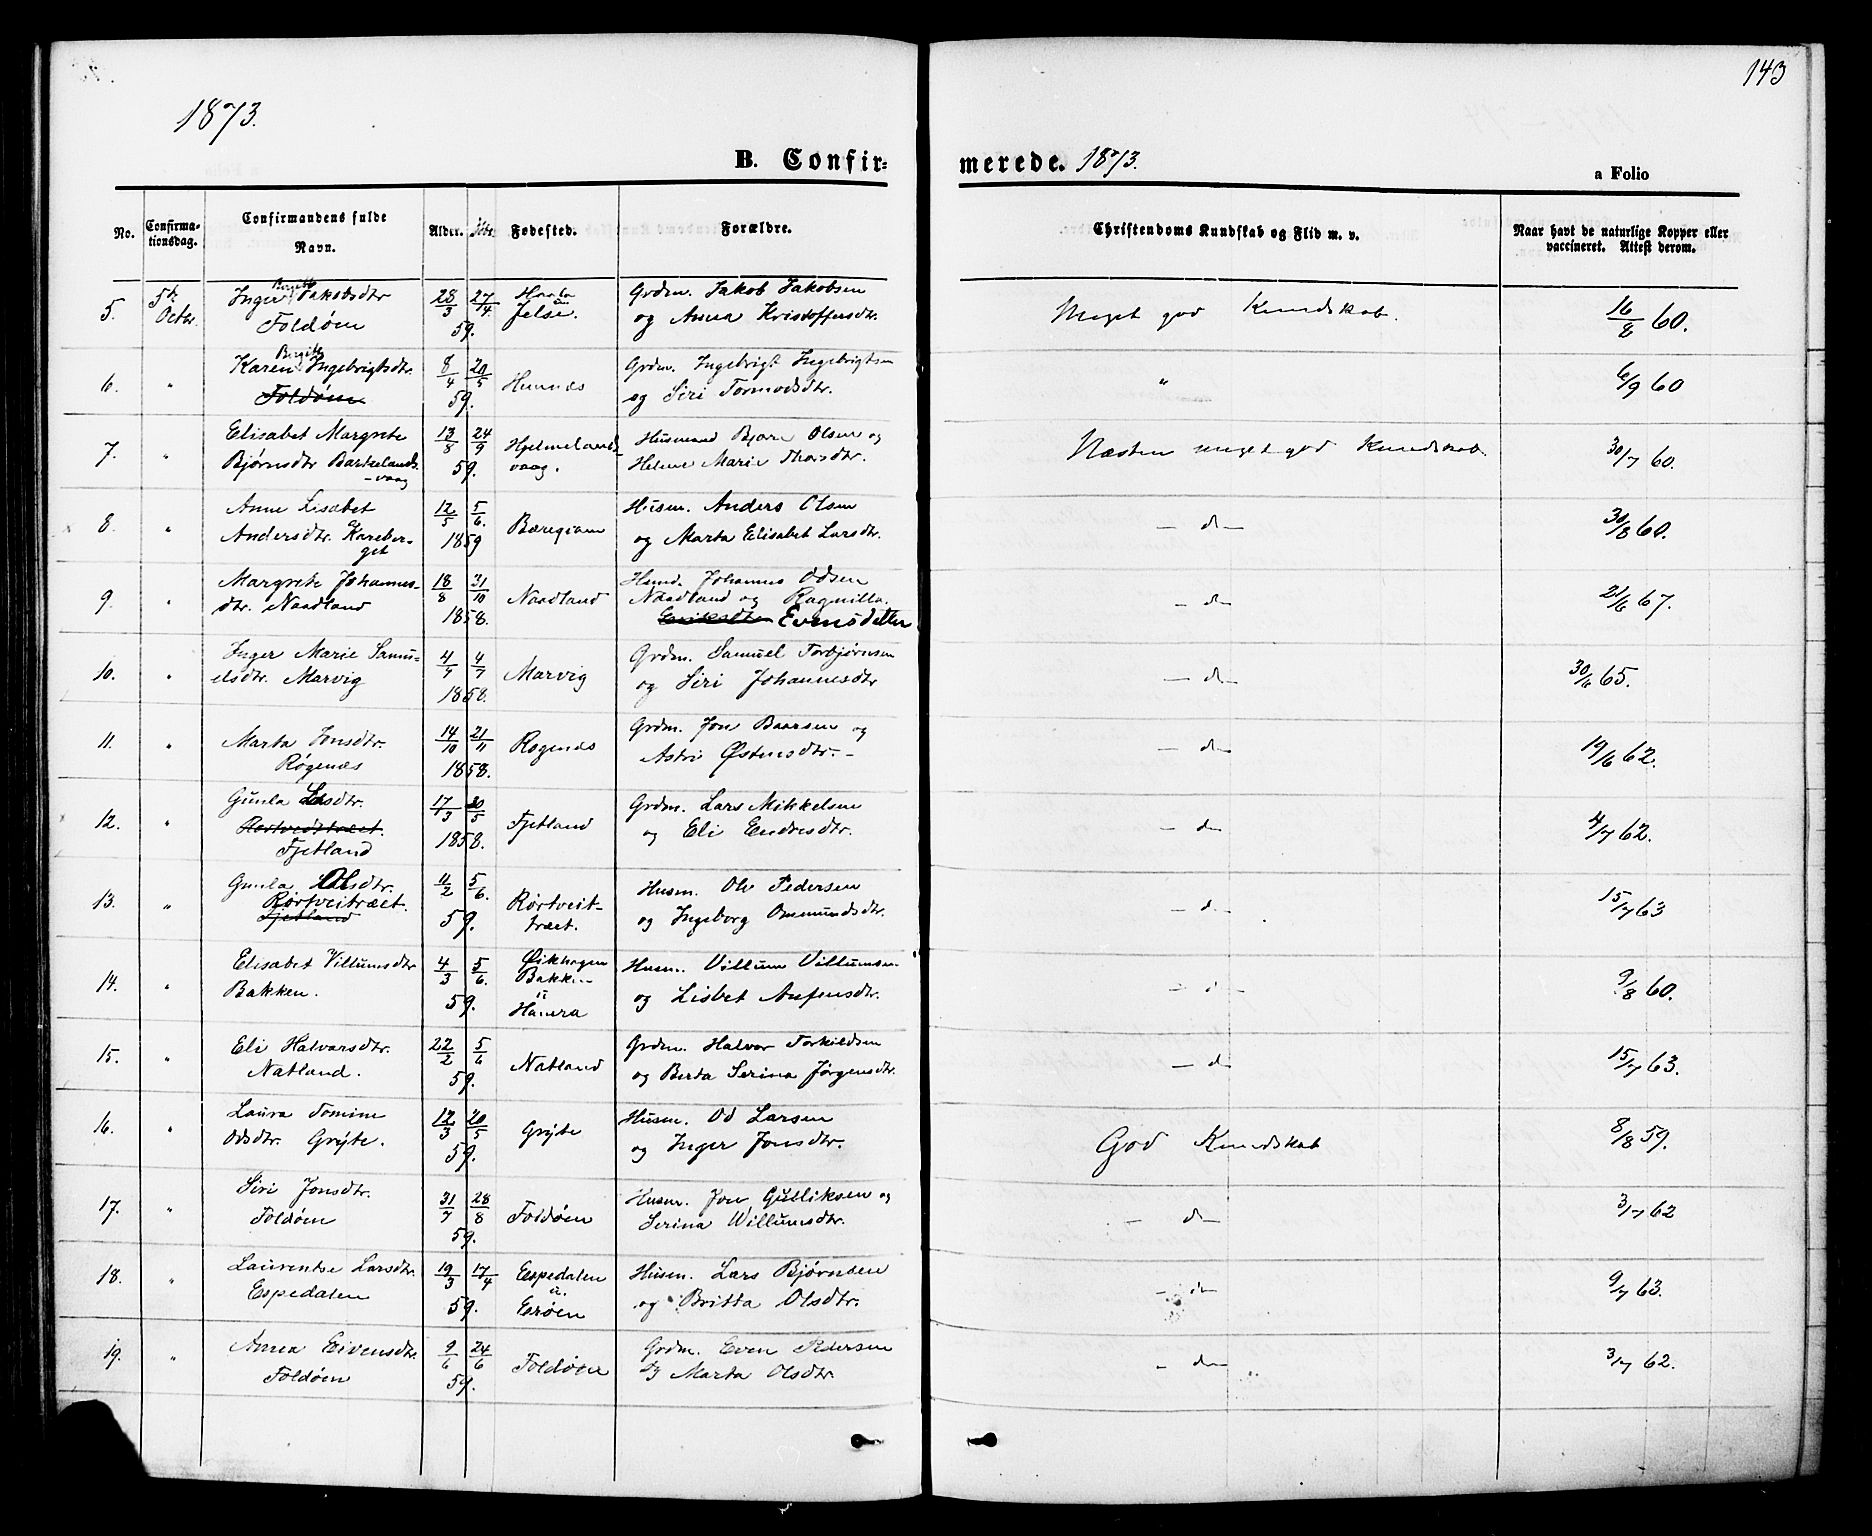 143
1873.
B. Confir-
merede. 1873.
a Folio
No.
Confirma-
tionsdag.
Confirmandens fulde
Navn.
Alder.
Fødested.
Forældre.
Christendoms Kundskab og Flid m. v.
Naar havt de naturlige Kopper eller
vaccineret. Attest derom.
5. 5te Octbr. Inger Berit Jakobsdtr Foldøen 28/3 27/4 59. Jelse. Grdm. Jakob Jakobsen og Anna Kristoffersdtr. Meget god Kundskab. 16/8 60.
6. " Karen Birgitte Ingebrigtsdtr. Foldøen 8/4 20/5 59. Hunnes Grdm. Ingebrigt Ingebrigtsen og Siri Tormodsdtr. " 6/9 60
7. " Elisabet Margrete Bjørnsdtr Barkelands-vaag 13/8 24/9 59. Hjelmelands-vaag. Husmand Bjørn Olsen og Helene Marie Thorsdtr. Næsten meget god Kundskab. 30/7 60.
8. " Anne Lisabet Andersdtr. Kareber-get 12/5 5/6. 1859 Husm. Anders Olsen og Marta Elisabet Larsdtr. – do – 30/8 60.
9. " Margrete Johannes-dtr. Naadland 18/8 31/10 1858. Naadland Husmd. Johannes Odsen Naadland og Ragnilla Evensdatter – do 21/6 67.
10. " Inger Marie Samu-elsdtr. Marvig 4/4 4/7 1858. Marvig Grdm. Samuel Torbjørnsen og Siri Johannesdtr – do – 30/6 65.
11. " Marta Jonsdtr. Røgenæs 14/10 21/11 1858. Røgenæs Grdm. Jon Baarsen og Astri Østensdtr. – – do 19/6 62.
12. " Gunla Larsdtr. Rørtveittræet. Fjetland 17/3 20/5 1858. Fjetland Grdm. Lars Mikkelsen og Eli Endresdtr. – do 4/7 62.
13. " Gunla Olsdtr. Rørtveitræet. Fjetland 11/2 5/6. 59. Rørtveit-træet. Husm. Ole Pedersen og Ingeborg Ommundsdtr. – do 15/7 63
14. " Elisabet Villumsdtr Bakken. 4/3 5/6. 59. Øikhagen Bakken u Hauera Husm. Villum Villumsen og Lisbet Aufensdtr. 9/8 60.
15. " Eli Halvarsdtr. Natland. 22/2 5/6 59. Natland Grdm. Halvor Torkildsen og Berta Serina Jørgensdtr. – do 15/7 63.
16. " Laura Tomine Odsdtr. Grÿte. 12/3 20/5 59. Grÿte Husm. Od Larsen og Inger Jonsdtr. God Kundskab 8/8 59.
17. " Siri Jonsdtr. Foldøen 31/7 28/8 59. Foldøen Husm. Jon Gulliksen og Serina Willumsdtr. – do 3/7 62
18. " Laurentse Larsdtr. Espedalen 19/3 17/4 59. Espedalen u. Erøen Husm. Lars Bjørnsen og Britta Olsdtr. – do 9/7 63.
19. " Anna Eivensdtr. Foldøen 9/6 24/6 59. Foldøen Grdm. Even Pedersen og Marta Olsdtr. – do 3/7 62.